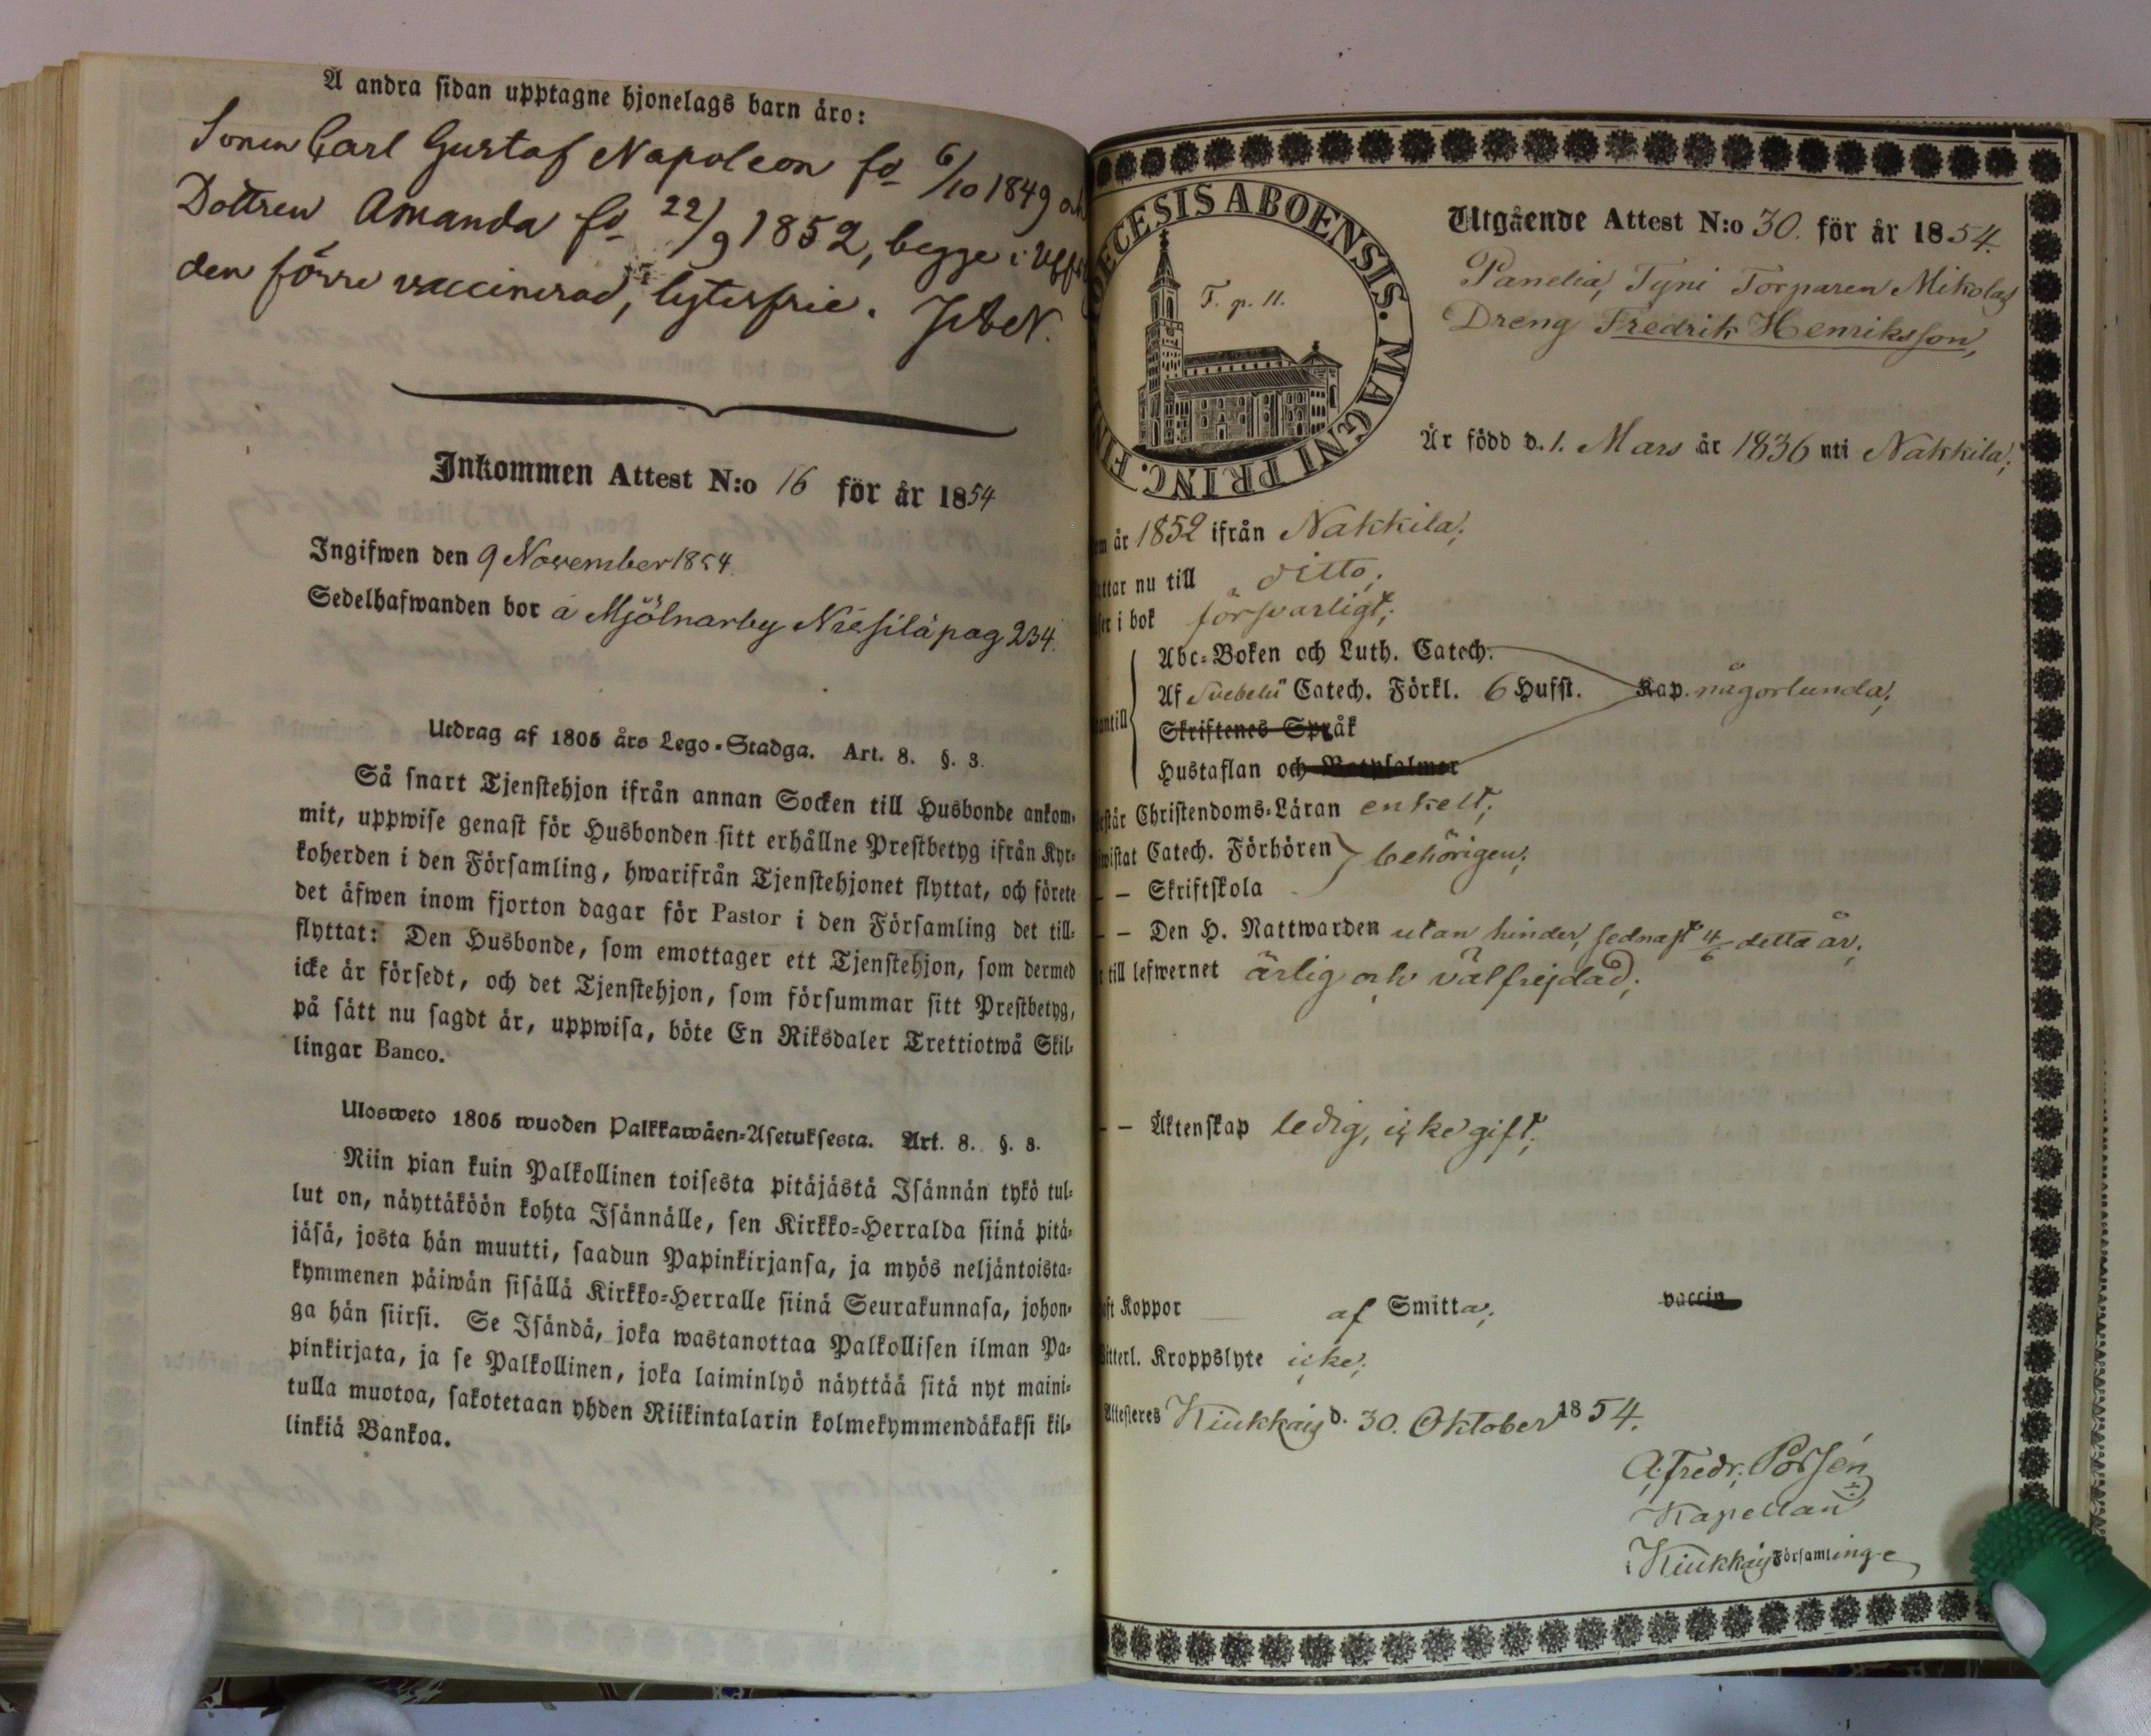 Å andra sidan upptagne hjonelags barn äro:
Sonen Carl Gustaf Napoleon fd 6/10 1849 och
Dottren Amanda fd 22/9 1852, begge i Ulfs
den förre vaccinerad, lyterfrie. JAN.
Inkommen Attest N:o 16 för år 1854
Ingifwen den 9 November 1854.
Sedelhafwanden bor å Mjölnarby Niesilä pag 234.
Utdrag af 1805 års Lego-Stadga. Art. 8. §. 3.
Så snart Tjenstehjon ifrån annan Socken till Husbonde ankom-
mit, uppwise genast för Husbonden sitt erhållne Prestbetyg ifrån Kyr-
koherden i den Församling, hwarifrån Tjenstehjonet flyttat, och förete
det äfwen inom fjorton dagar för Pastor i den Församling det till-
flyttat: Den Husbonde, som emottager ett Tjenstehjon, som dermed
icke är försedt, och det Tjenstehjon, som försummar sitt Prestbetyg,
på sätt nu sagdt är, uppwisa, böte En Riksdaler Trettiotwå Skil-
lingar Banco.
Ulosweto 1805 wuoden Palkkawäen-Asetuksesta. Art. 8. §. 3.
Niin pian kuin Palkollinen toisesta pitäjästä Isännän tykö tul-
lut on, näyttäköön kohta Isännälle, sen Kirkko-Herralda siinä pitä-
jäsä, josta hän muutti, saadun Papinkirjansa, ja myös neljäntoista-
kymmenen päiwän sisällä Kirkko-Herralle siinä Seurakunnasa, johon-
ga hän siirsi. Se Isändä, joka wastanottaa Palkollisen ilman Pa-
pinkirjata, ja se Palkollinen, joka laiminlyö näyttää sitä nyt maini-
tulla muotoa, sakotetaan yhden Riikintalarin kolmekymmendäkaksi kil-
linkiä Bankoa.
DIOECESIS ABOENSIS. MAGNI PRINC. FIN
T. p. 11.
Utgående Attest N:o 30. för år 1854.
Panelia, Tyni Torparen Mikolas
Dreng Fredrik Henriksson,
Är född d. 1. Mars år 1836 uti Nakkila;
om år 1852 ifrån Nakkila;
yttar nu till ditto;
ser i bok försvarligt;
antill
Abc-Boken och Luth. Catech.
Af Svebelii Catech. Förkl. 6 Hufst. Kap. någorlunda;
Skriftenes Språk
Hustaflan och Botpsalmer
rstår Christendoms-Läran enkelt;
wistat Catech. Förhören behörigen;
– – Skriftskola
– – Den H. Nattwarden utan hinder, sednast 4/6 detta år;
r till lefwernet ärlig och välfrejdad;
– – Äktenskap ledig, icke gift;
aft Koppor af Smitta; vaccin
Witterl. Kroppslyte icke;
Attesteras Kiukkais d. 30. Oktober 1854.
A. Fredr. Polsén
Kapellan
Kiukkais Församlinge